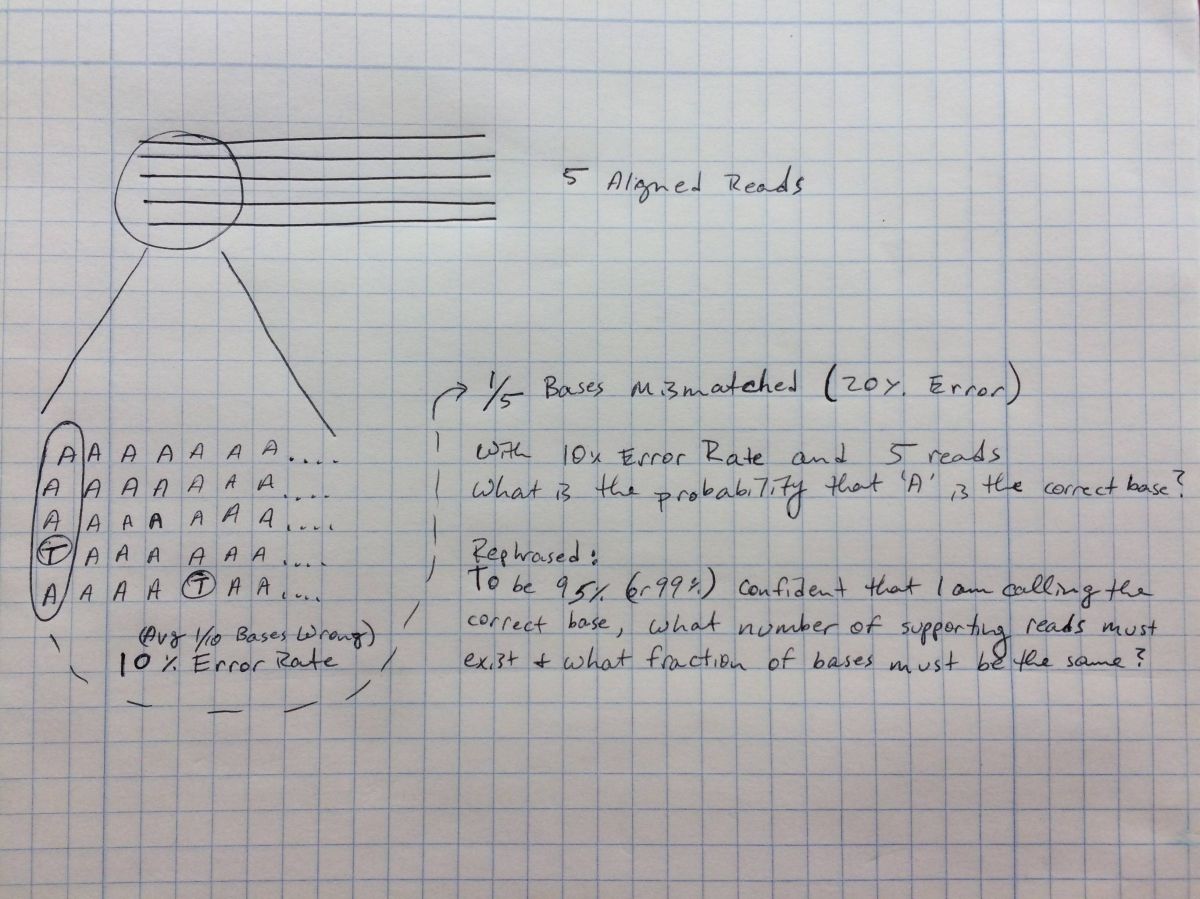 5 Aligned Reads
1/5 Bases Mismatched (20% Error)
With 10% Error Rate and 5 reads
What is the probability that 'A' is the correct base?
Rephrased:
To be 95% (or 99%) confident that I am calling the
correct base, what number of supporting reads must
exist & what fraction of bases must be the same?
A A A A A A A....
A A A A A A A....
A A A A A A A....
T A A A A A A....
A A A A T A A....
(Avg 1/10 Bases Wrong)
10% Error Rate